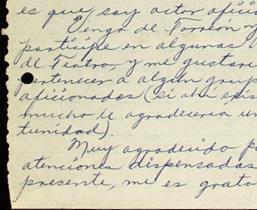 es que soy actor afici
Vengo de Torreón y
participé en algunas o
de Teatro, y me gustarí
pertenecer a algún grup
aficionados (si ahí exis
mucho le agradecería un
tunidad).
Muy agradecido p
atenciones dispensadas
presente, me es grato